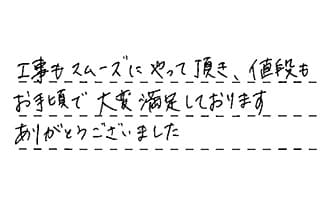 工事もスムーズにやって頂き、値段も
お手頃で大変満足しております
ありがとうございました